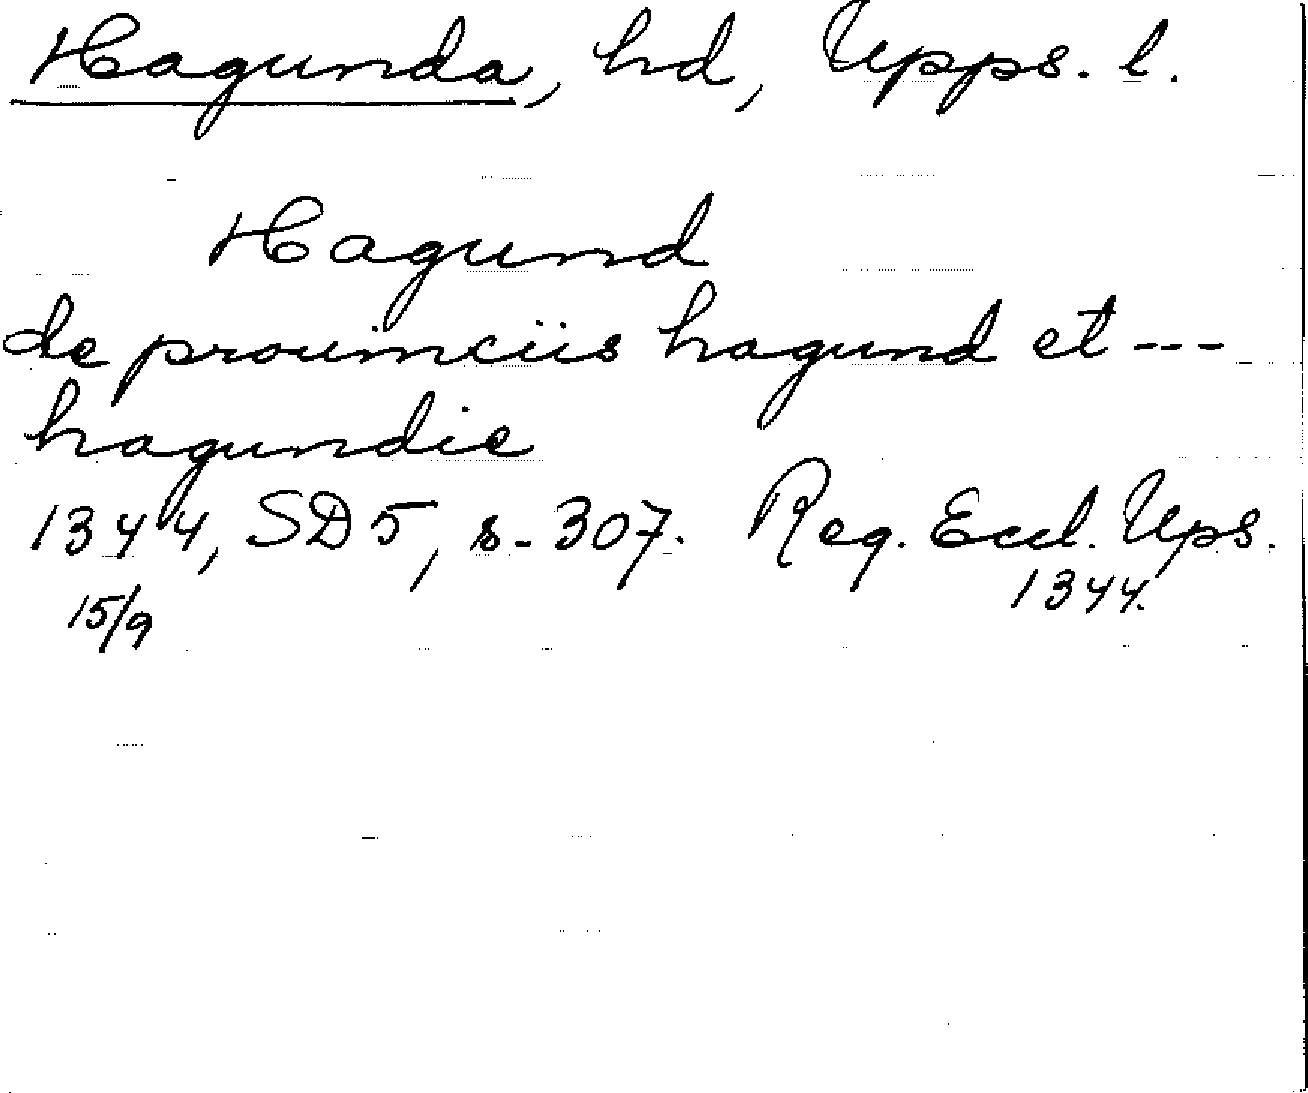 Hagunda, hd, Upps. l.
Hagund
de prouinciis hagund et ---
hagundie
1344, SD5, s. 307. Reg. Eccl. Ups.
15/9 1344.